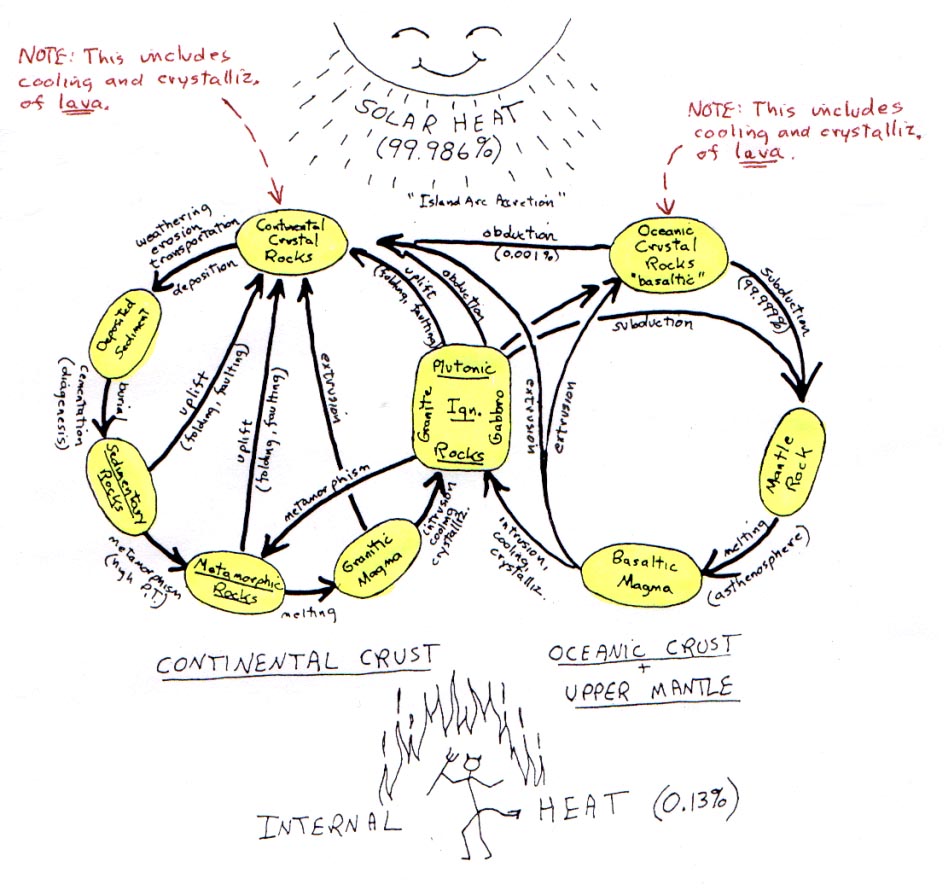 NOTE: This includes
cooling and crystalliz.
of lava.
SOLAR HEAT
(99.986%)
NOTE: This includes
cooling and crystalliz.
of lava.
"Island Arc Accretion"
Continental
Crustal
Rocks
Oceanic
Crustal
Rocks
"basaltic"
obduction
(0.001%)
weathering
erosion
transportation
deposition
Subduction
(99.999%)
uplift
(folding, faulting)
obduction
subduction
Deposited
Sediment
burial
Cementation
(diagenesis)
uplift
(folding, faulting)
uplift
(folding, faulting)
extrusion
Plutonic
Granite
Ign.
Gabbro
Rocks
extrusion
extrusion
Sedimentary
Rocks
Mantle
Rock
metamorphism
intrusion
cooling
crystalliz.
intrusion,
cooling,
crystalliz.
melting
(asthenosphere)
metamorphism
(high P.T.)
Metamorphic
Rocks
melting
Granitic
Magma
Basaltic
Magma
CONTINENTAL CRUST
OCEANIC CRUST
+
UPPER MANTLE
INTERNAL HEAT (0.13%)